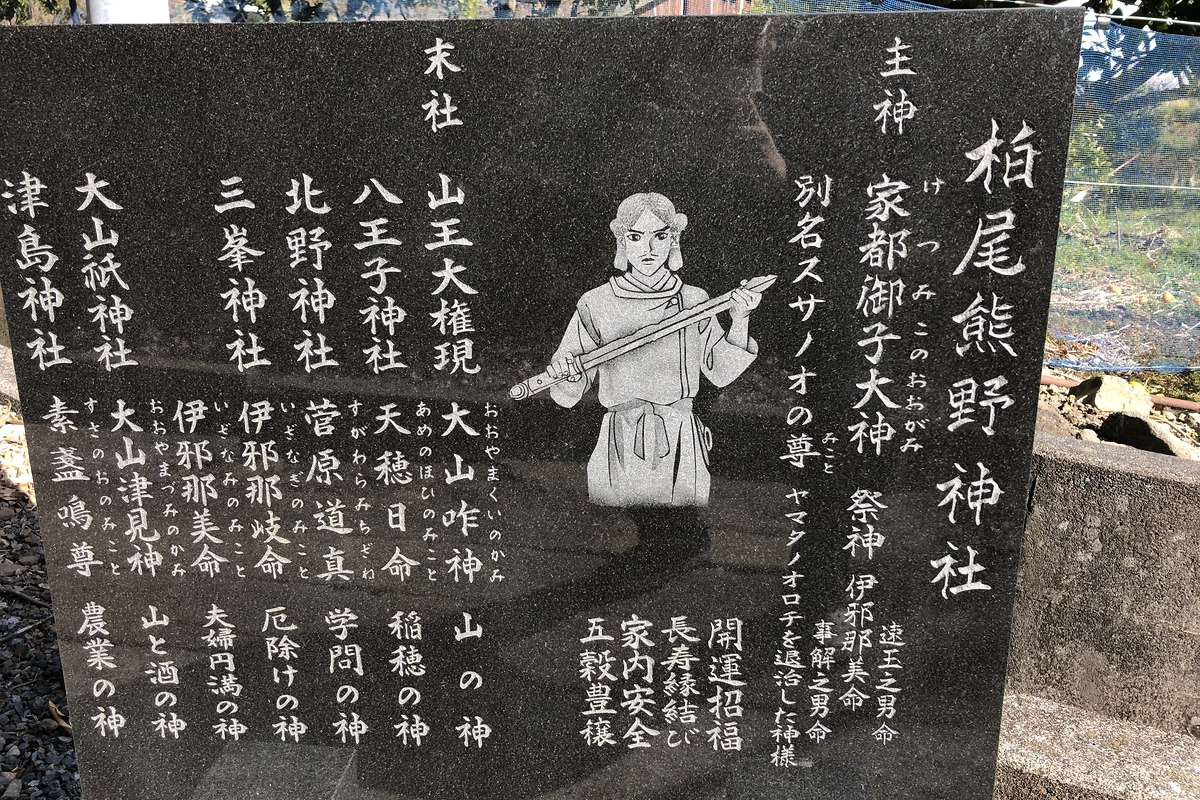 柏尾熊野神社
主神
家都御子大神
けつみこのおおがみ
祭神
速玉之男命
伊邪那美命
事解之男命
別名スサノオの尊
みこと
ヤマタノオロチを退治した神様
開運招福
長寿縁結び
家内安全
五穀豊穣
末社
山王大権現
大山咋神
おおやまくいのかみ
山の神
八王子神社
天穂日命
あめのほひのみこと
稲穂の神
北野神社
菅原道真
すがわらみちざね
学問の神
三峯神社
伊邪那岐命
いざなぎのみこと
厄除けの神
伊邪那美命
いざなみのみこと
夫婦円満の神
大山祇神社
大山津見神
おおやまづみのかみ
山と酒の神
津島神社
素盞鳴尊
すさのおのみこと
農業の神